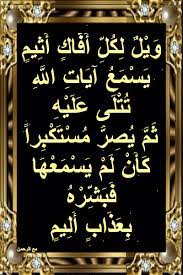 وَيْلٌ لِكُلِّ أَفَّاكٍ أَثِيمٍ
يَسْمَعُ آيَاتِ اللَّهِ
تُتْلَى عَلَيْهِ
ثُمَّ يُصِرُّ مُسْتَكْبِراً
كَأَنْ لَمْ يَسْمَعْهَا
فَبَشِّرْهُ
بِعَذَابٍ أَلِيمٍ
مع الرحمن